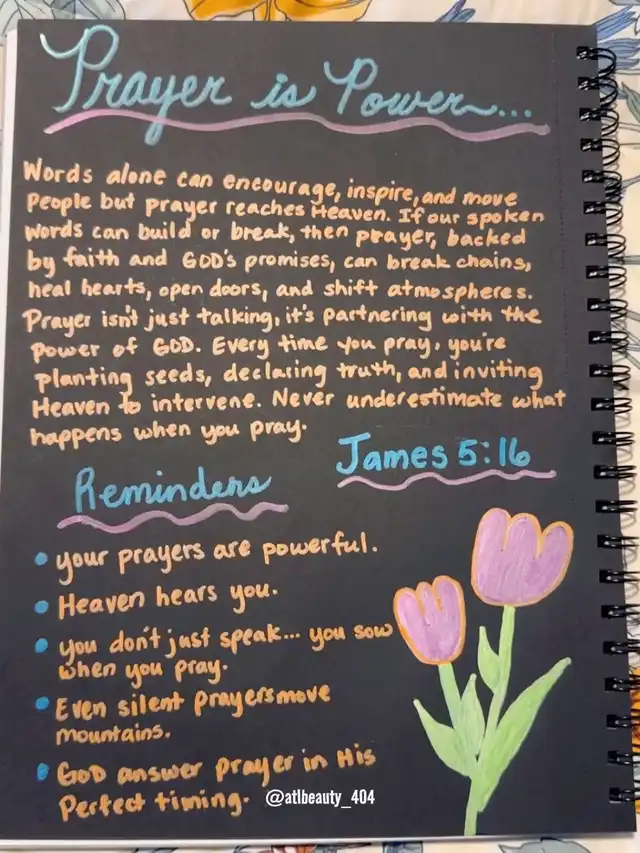 Prayer is Power...
Words alone can encourage, inspire, and move
people but prayer reaches Heaven. If our spoken
words can build or break, then prayer, backed
by faith and GOD's promises, can break chains,
heal hearts, open doors, and shift atmospheres.
Prayer isn't just talking, it's partnering with the
power of GOD. Every time you pray, you're
planting seeds, declaring truth, and inviting
Heaven to intervene. Never underestimate what
happens when you pray.
James 5:16
Reminders
• your prayers are powerful.
• Heaven hears you.
• you don't just speak... you sow
when you pray.
• Even silent prayers move
mountains.
• GOD answer prayer in His
Perfect timing.
@atlbeauty_404